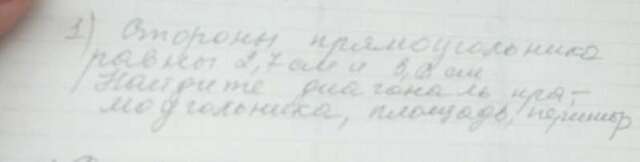 1) Стороны прямоугольника
равны 2,7 см и 3,2 см
Найдите диагональ пря-
моугольника, площадь, периметр